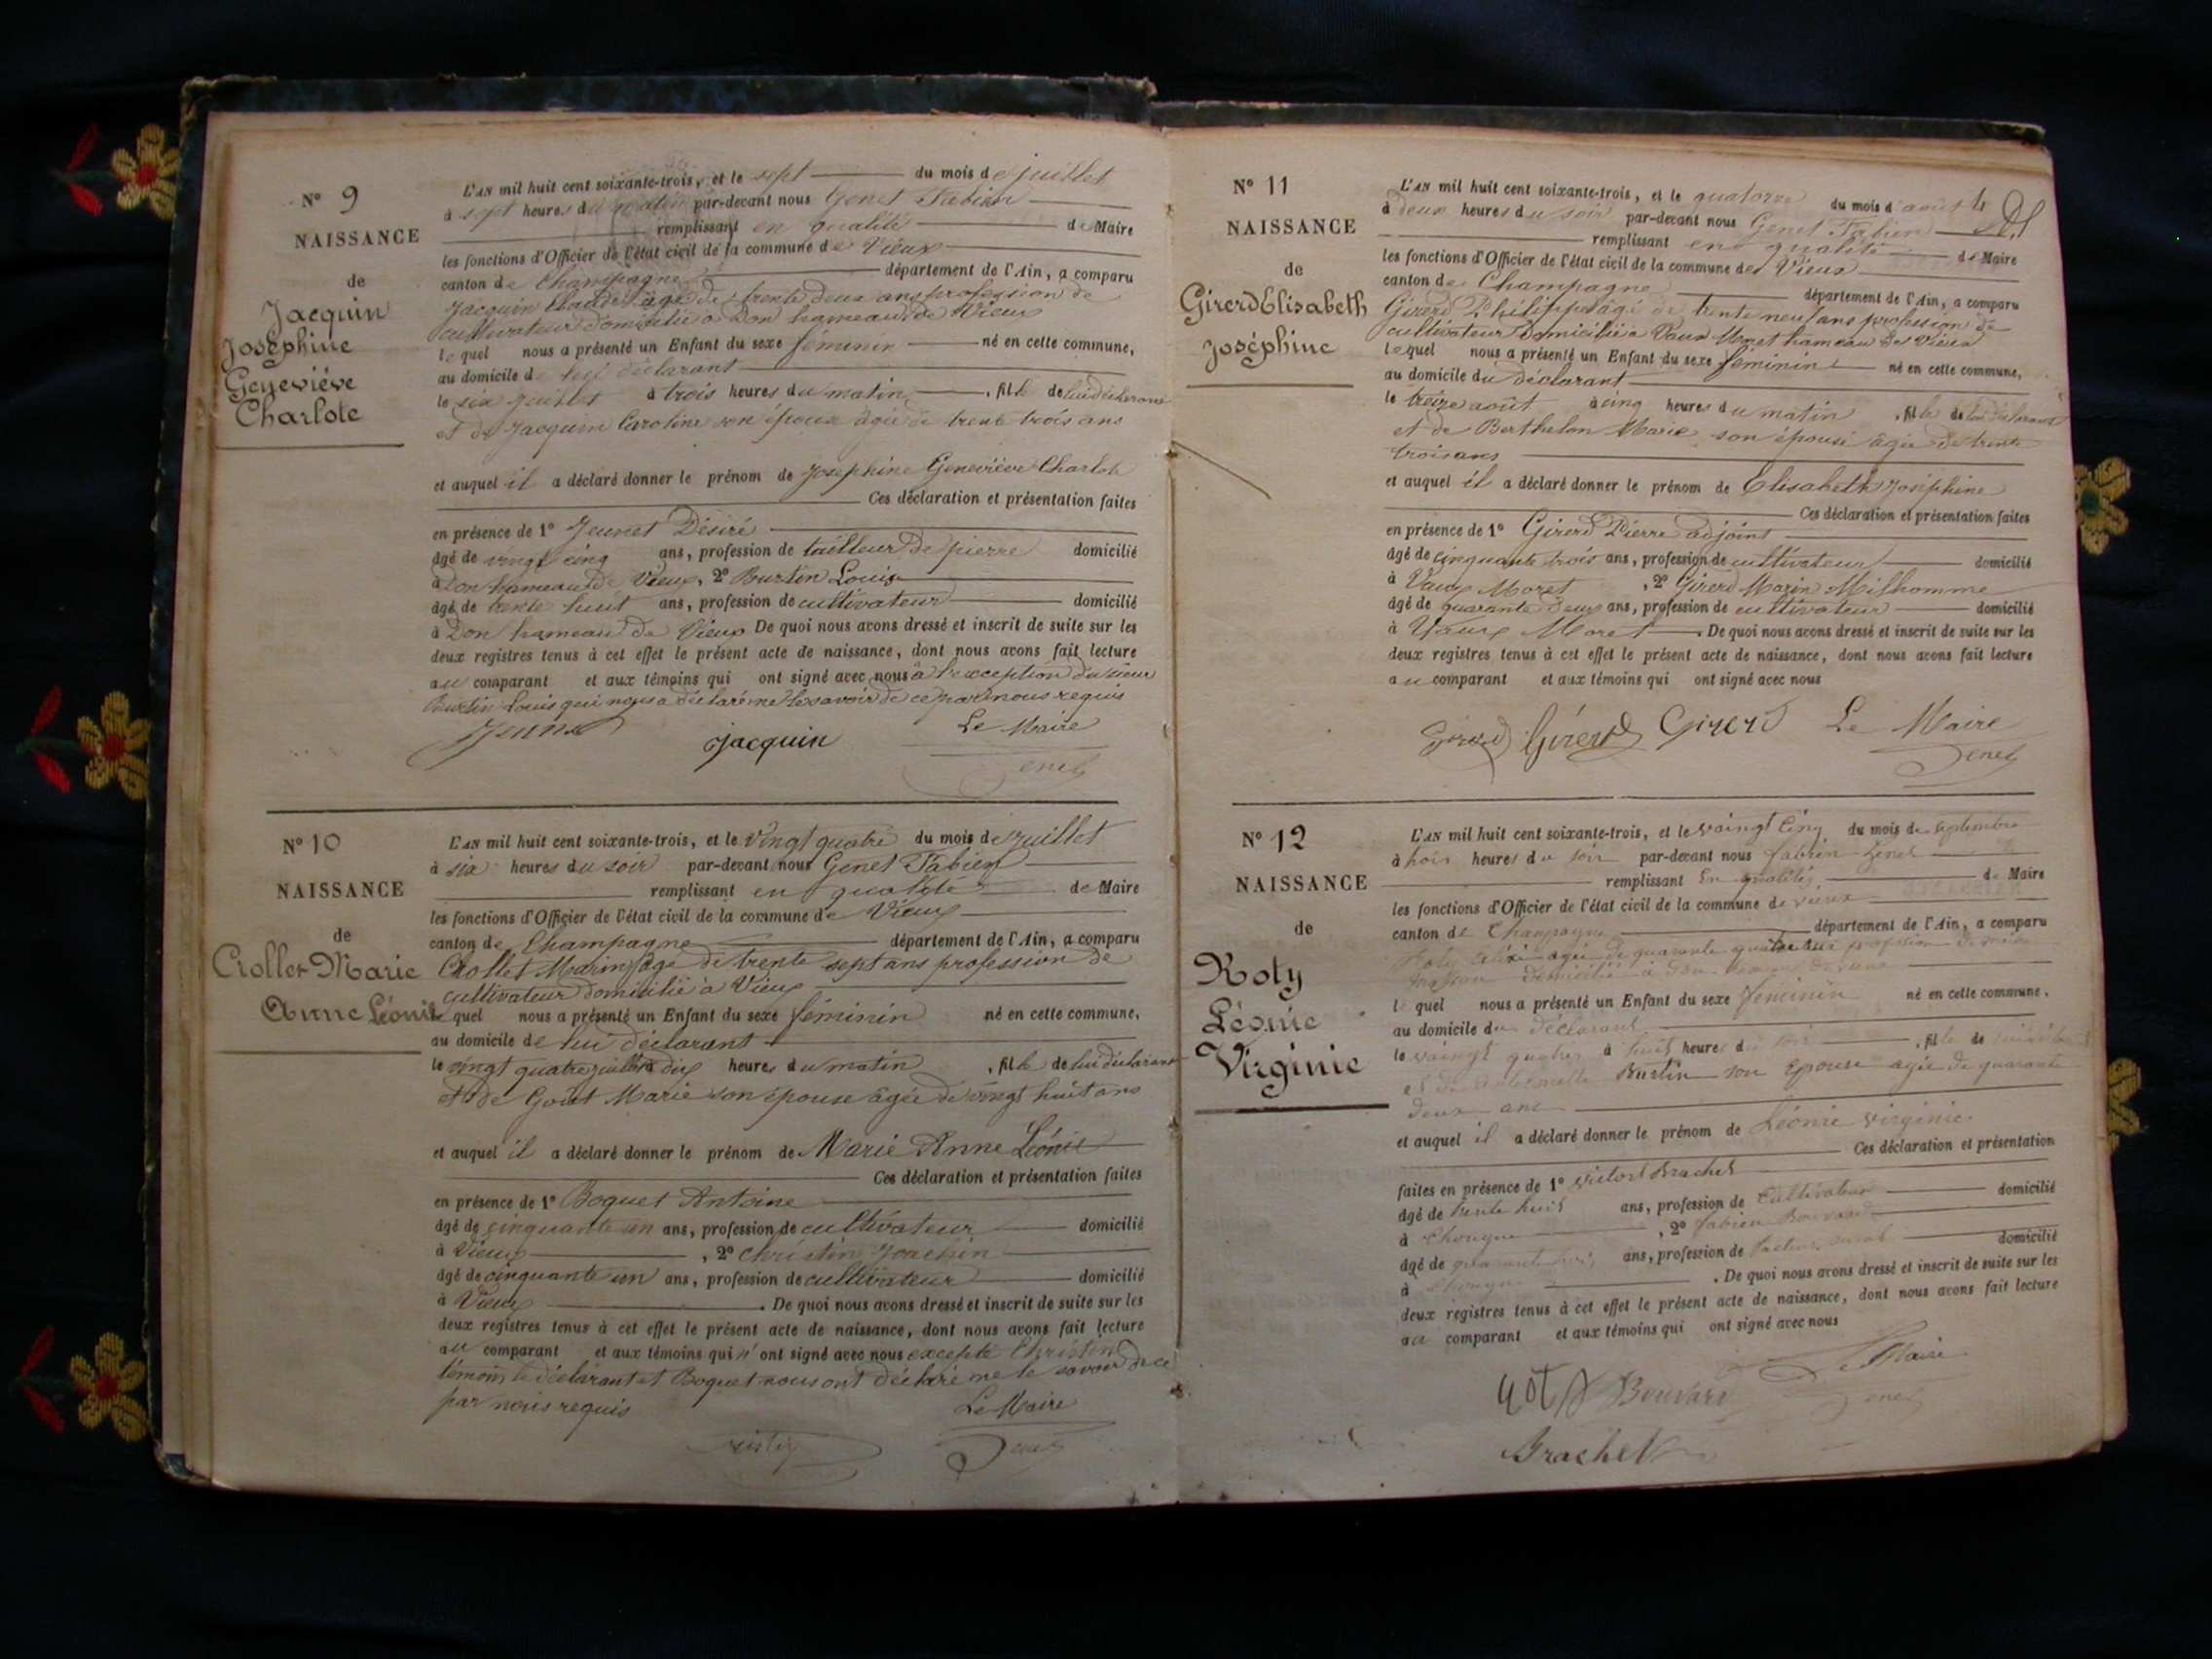 N° 9
NAISSANCE
de
Jacquin
Joséphine
Geneviéve
Charlote
L'AN mil huit cent soixante-trois, et le sept du mois de juillet
à sept heures du matin par-devant nous Genet Fabien
remplissant en qualité de Maire
les fonctions d'Officier de l'état civil de la commune de Vieux
canton de Champagne département de l'Ain, a comparu
Jacquin Claude âgé de trente deux ans profession de
cultivateur domicilié à Don hameau de Vieux
lequel nous a présenté un Enfant du sexe féminin né en cette commune,
au domicile de lui déclarant
le six juillet à trois heures du matin, fille de lui déclarant
et de Jacquin Caroline son épouse âgée de trente trois ans
et auquel il a déclaré donner le prénom de Josephine Geneviève Charlote
Ces déclaration et présentation faites
en présence de 1° Jeunet Désiré
âgé de vingt cinq ans, profession de tailleur de pierre domicilié
à Don hameau de Vieux, 2° Burtin Louis
âgé de trente huit ans, profession de cultivateur domicilié
à Don hameau de Vieux De quoi nous avons dressé et inscrit de suite sur les
deux registres tenus à cet effet le présent acte de naissance, dont nous avons fait lecture
au comparant et aux témoins qui ont signé avec nous à l'exception du sieur
Burtin Louis qui nous a déclaré ne le savoir de ce par nous requis
Jacquin Le Maire
Genet
N° 10
NAISSANCE
de
Crollet Marie
Anne Léonie
L'AN mil huit cent soixante-trois, et le vingt quatre du mois de juillet
à six heures du soir par-devant nous Genet Fabien
remplissant en qualité de Maire
les fonctions d'Officier de l'état civil de la commune de Vieux
canton de Champagne département de l'Ain, a comparu
Crollet Marin âgé de trente sept ans profession de
cultivateur domicilié à Vieux
lequel nous a présenté un Enfant du sexe féminin né en cette commune,
au domicile de lui déclarant
le vingt quatre juillet à dix heures du matin, fille de lui déclarant
et de Gout Marie son épouse âgée de vingt huit ans
et auquel il a déclaré donner le prénom de Marie Anne Léonie
Ces déclaration et présentation faites
en présence de 1° Boquet Antoine
âgé de cinquante un ans, profession de cultivateur domicilié
à Vieux, 2° Christin Joachin
âgé de cinquante un ans, profession de cultivateur domicilié
à Vieux. De quoi nous avons dressé et inscrit de suite sur les
deux registres tenus à cet effet le présent acte de naissance, dont nous avons fait lecture
au comparant et aux témoins qui n'ont signé avec nous excepté Christin
témoin le déclarant et Boquet nous ont déclaré ne le savoir de ce
par nous requis Le Maire
Genet
N° 11
NAISSANCE
de
Girerd Elisabeth
Joséphine
L'AN mil huit cent soixante-trois, et le quatorze du mois d'août
à deux heures du soir par-devant nous Genet Fabien
remplissant en qualité de Maire
les fonctions d'Officier de l'état civil de la commune de Vieux
canton de Champagne département de l'Ain, a comparu
Girerd Philippe âgé de trente neuf ans profession de
cultivateur domicilié à Vaux Moret hameau de Vieux
lequel nous a présenté un Enfant du sexe féminin né en cette commune,
au domicile du déclarant
le treize août à cinq heures du matin, fille de lui déclarant
et de Berthelon Marie son épouse âgée de trente
trois ans
et auquel il a déclaré donner le prénom de Elisabeth Joséphine
Ces déclaration et présentation faites
en présence de 1° Girerd Pierre adjoint
âgé de cinquante trois ans, profession de cultivateur domicilié
à Vaux Moret, 2° Girerd Marin Milhomme
âgé de quarante deux ans, profession de cultivateur domicilié
à Vaux Moret. De quoi nous avons dressé et inscrit de suite sur les
deux registres tenus à cet effet le présent acte de naissance, dont nous avons fait lecture
au comparant et aux témoins qui ont signé avec nous
Girerd Girerd Girerd Le Maire
Genet
N° 12
NAISSANCE
de
Roty
Léonie
Virginie
L'AN mil huit cent soixante-trois, et le vaingt cinq du mois de septembre
à trois heures du soir par-devant nous fabien Genet
remplissant en qualité de Maire
les fonctions d'Officier de l'état civil de la commune de vieux
canton de Champagne département de l'Ain, a comparu
Roty agé de quarante quatre ans profession de
masson domicilié à don
le quel nous a présenté un Enfant du sexe feminin né en cette commune.
au domicile du déclarant
le vaingt quatre à huit heures du soir, fille de
et de Burtin son epouse agée de quarante
deux ans
et auquel il a déclaré donner le prénom de Léonie virginie
Ces déclaration et présentation
faites en présence de 1° victor Brachet
âgé de trente huit ans, profession de Cultivateur domicilié
à Chongne, 2° fabien Bouvard
âgé de quarante ans, profession de facteur rural domicilié
à Chongne. De quoi nous avons dressé et inscrit de suite sur les
deux registres tenus à cet effet le présent acte de naissance, dont nous avons fait lecture
au comparant et aux témoins qui ont signé avec nous
Le Maire
Bouvard Genet
Brachet